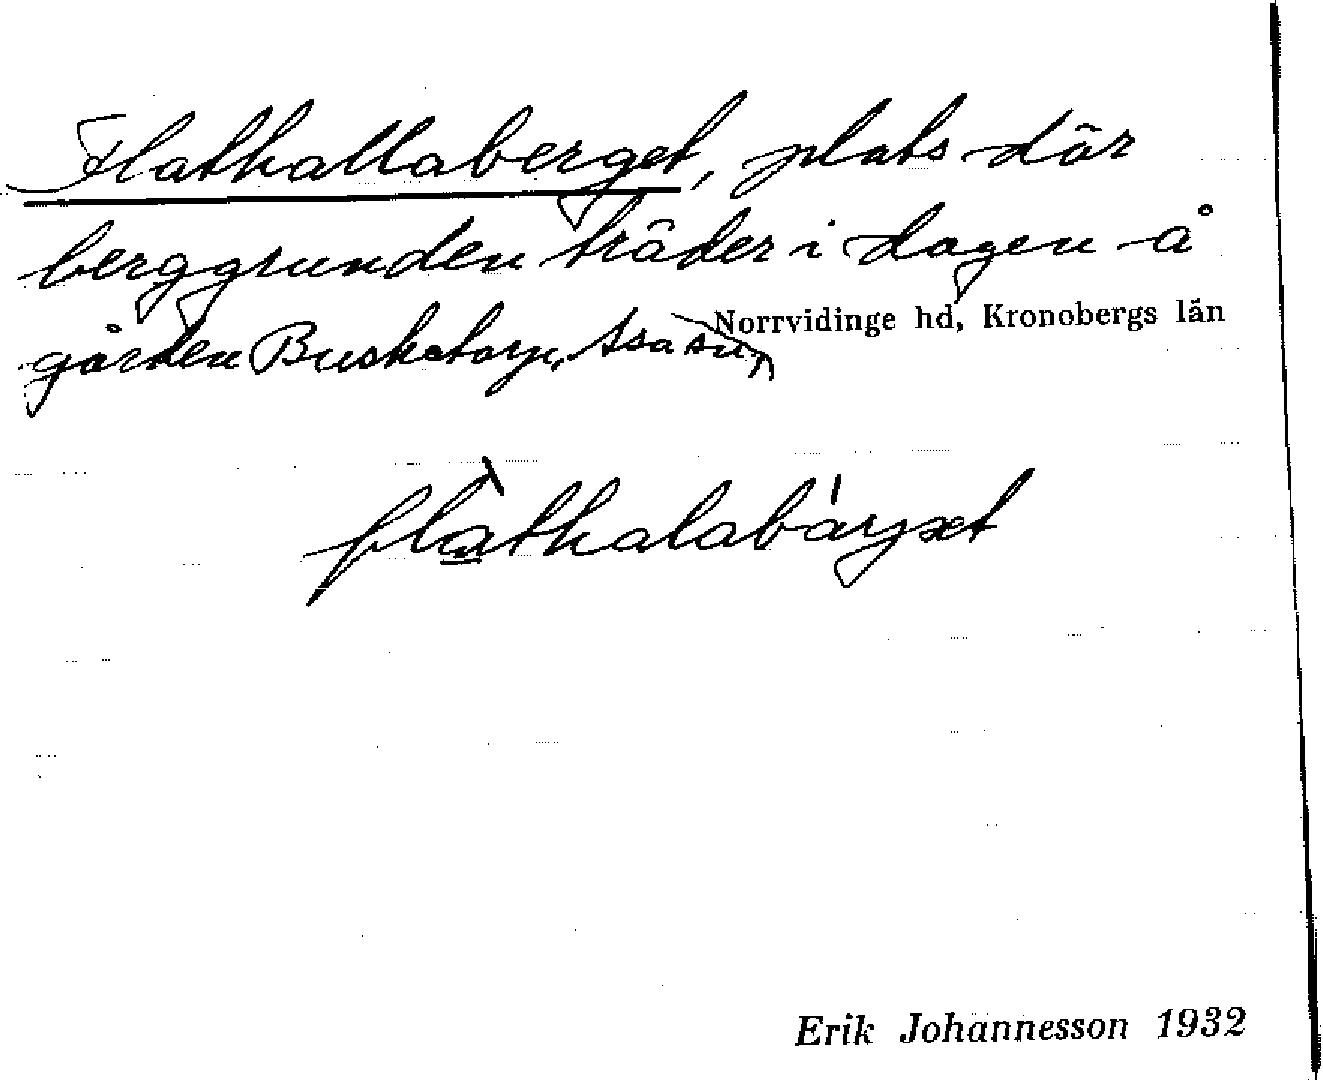 Flathallaberget, plats där
berggrunden träder i dagen å
gården Busketorp, Asa sn,
Norrvidinge hd, Kronobergs län
flàthalabáryxet
Erik Johannesson 1932